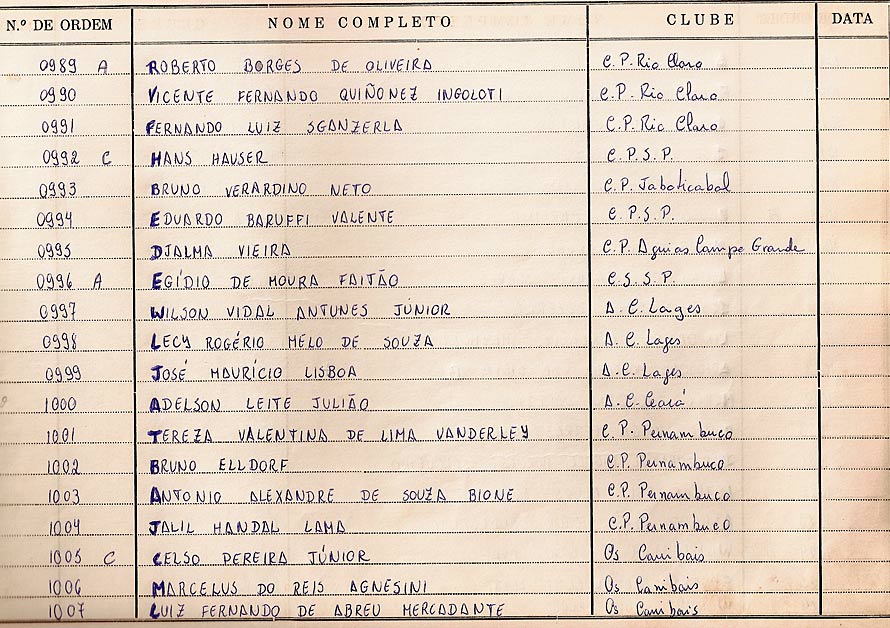 N.º DE ORDEM NOME COMPLETO CLUBE DATA
0989 A ROBERTO BORGES DE OLIVEIRA C.P. Rio Claro
0990 VICENTE FERNANDO QUIÑONEZ INGOLOTI C.P. Rio Claro
0991 FERNANDO LUIZ SGANZERLA C.P. Rio Claro
0992 C HANS HAUSER C.P.S.P.
0993 BRUNO VERARDINO NETO C.P. Jaboticabal
0994 EDUARDO BARUFFI VALENTE C.P.S.P.
0995 DJALMA VIEIRA C.P. Aguias Campo Grande
0996 A EGÍDIO DE MOURA FAITÃO C.S.S.P.
0997 WILSON VIDAL ANTUNES JÚNIOR A.C. Lages
0998 LECY ROGÉRIO MELO DE SOUZA A.C. Lages
0999 JOSÉ MAURÍCIO LISBOA A.C. Lages
1000 ADELSON LEITE JULIÃO A.C. Ceará
1001 TEREZA VALENTINA DE LIMA VANDERLEY C.P. Pernambuco
1002 BRUNO ELLDORF C.P. Pernambuco
1003 ANTONIO ALEXANDRE DE SOUZA BIONE C.P. Pernambuco
1004 JALIL HANDAL LAMA C.P. Pernambuco
1005 C CELSO PEREIRA JÚNIOR Os Canibais
1006 MARCELUS DO REIS AGNESINI Os Canibais
1007 LUIZ FERNANDO DE ABREU MERCADANTE Os Canibais